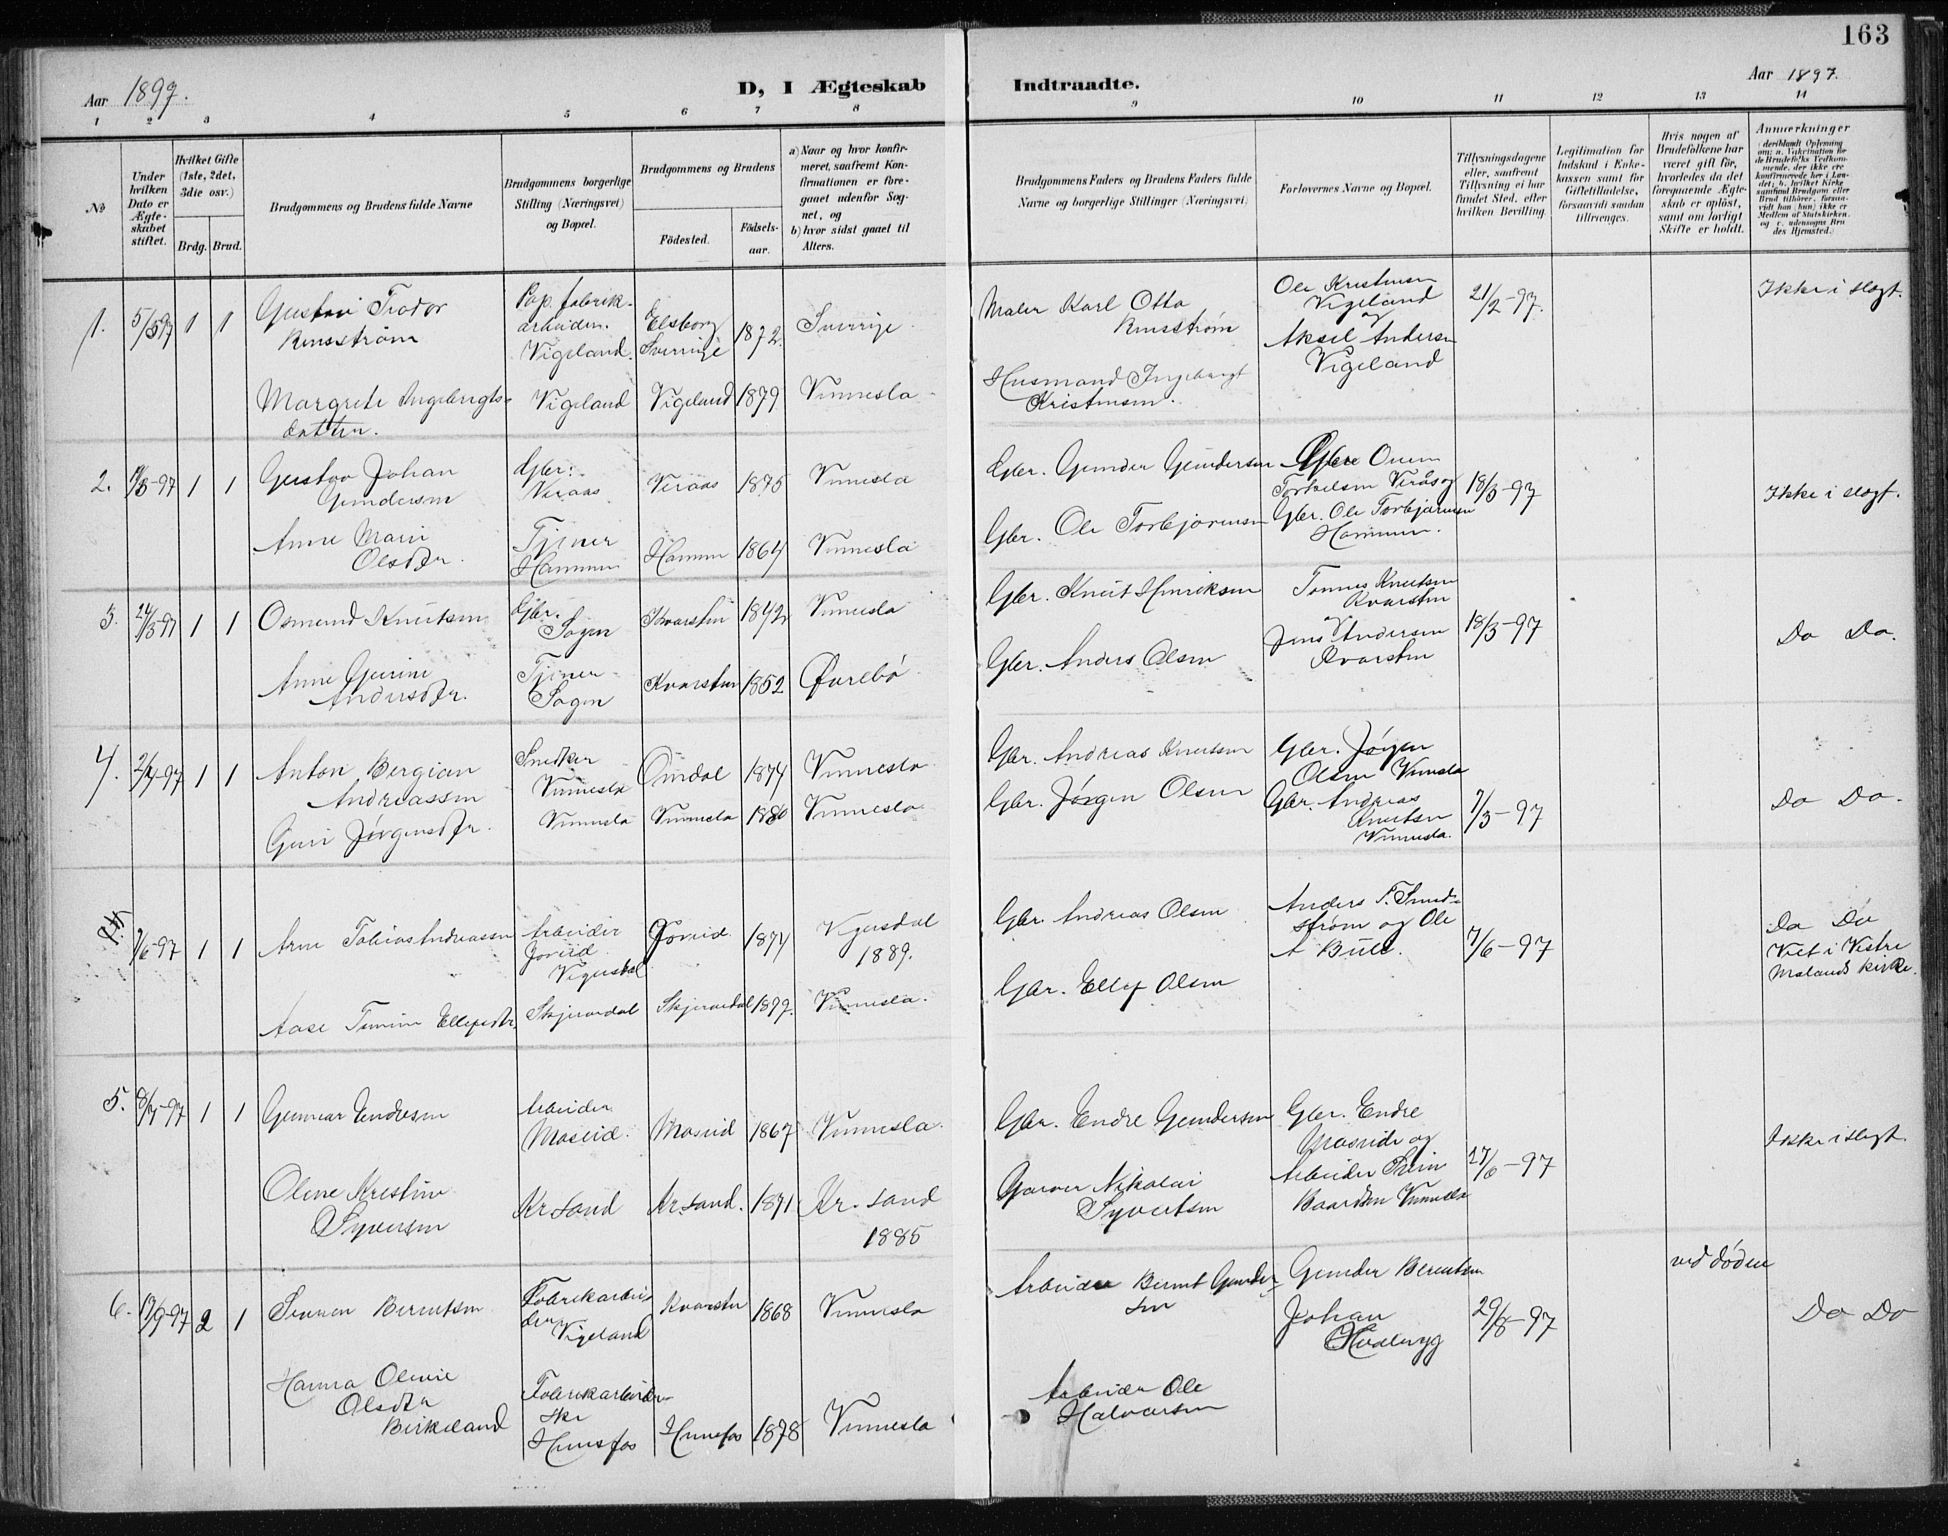 163
Aar 1897.
D, I Ægteskab Indtraadte.
Aar 1897.
1 2 3 4 5 6 7 8 9 10 11 12 13 14
No
Under hvilken Dato er Ægteskabet stiftet.
Hvilket Gifte (1ste, 2det, 3die osv.)
Brdg. Brud.
Brudgommens og Brudens fulde Navne
Brudgommens borgerlige Stilling (Næringsvei) og Bopæl.
Brudgommens og Brudens
Fødested.
Fødselsaar.
a) Naar og hvor konfirmeret, saafremt Konfirmationen er foregaaet udenfor Sognet, og
b) hvor sidst gaaet til Alters.
Brudgommens Faders og Brudens Faders fulde Navne og borgerlige Stillinger (Næringsvei)
Forlovernes Navne og Bopæl.
Tillysningsdagene eller, saafremt Tillysning ei har fundet Sted, efter hvilken Bevilling.
Legitimation for Indskud i Enkekassen samt for Giftetilladelse, forsaavidt saadan tiltrenges.
Hvis nogen af Brudefolkene har været gift før, hvorledes da det foregaaende Ægteskab er opløst, samt om lovligt Skifte er holdt.
Anmerkninger
1. 5/3 97 1 1 Gustav Teodor
Pap. fabrikarbeider. Vigeland.
Elsborg Sverrige 1872. Sverrige
Maler Karl Otto
Ole Kristensen Vigeland
og
Aksel Andersen Vigeland
21/2-97.
Ikke i slægt.
Margrete Ingebrigtsdatter.
Vigeland Vigeland 1879 Vennesla
Husmand Ingebrigt Kristensen.
2. 1 1 Gustav Johan Gundersen
Gbr: Veraas Veraas 1875 Vennesla
Gbr. Gunder Gundersen
Torkelsen Veraas og
Gbr. Ole Torbjørnsen
18/3-97
Ikke i slægt.
Anne Marie Olsdtr.
Tjener
1864 Vennesla
Gbr. Ole Torbjørnsen
3. 24/3-97 1 1 Osmund Knutsen
Gbr. Sagen Kvarsten 1842 Vennesla
Gbr. Knut Henriksen
Tomas Knutsen Kvarsten
Jens Andersen Kvarsten
18/3-97
Do Do.
Anne Gurine Andersdtr.
Tjener Sagen Kvarsten 1852 Øvrebø
Gbr. Anders Olsen
4. 2/4-97 1 1 Anton Bergian Andreassen
Snedker Vennesla Oindal 1874 Vennesla
Gbr. Andreas Knutsen
Gbr. Jørgen Olsen Vennesla
Gbr. Andreas Knutsen Vennesla.
7/3-97
Do Do.
Guri Jørgensdtr.
Vennesla Vennesla 1880 Vennesla
Gbr. Jørgen Olsen
7/6-97 1 1 Arne Tobias Andreassen
Arbeider Joreid Vigusdal Joreid 1874 Vegusdal 1889.
Gbr. Andreas Olsen
Anders T. Smedstrøm og Ole
7/6-97
Do Do
Viet i Vestre
Molands kirke.
Aase Ellefsdtr
Skjerardal Skjerardal 1879. Vennesla.
Gbr. Ellef Olsen
5. 8/7-97 1 1 Gunnar Endresen
Arbeider Moseid. Moseid 1867 Vennesla.
Gbr. Endre Gundersen
Gbr. Endre Moseid og
Arbeider Svein Baardsen Vennesla
27/6-97
Ikke i slegt.
Oline Kristine Syversen
Kr sand Kr. sand. 1871 Kr. sand
1885
Garver Nikolai Syvertsen
6. 19/9-97 2 1 Berentsen
Fabrikarbeider Vigeland
Kvarsten 1868 Vennesla
Arbeider Bernt Gundersen
Gunder Berentsen
Johan Hedbergg
29/8-97
ved døden
Do Do
Hanna Olevie Olsdtr Birkeland
Fabrikarbeiderske Hunsfos
Hunsfos 1878 Vennesla
Arbeider Ole Halvorsen